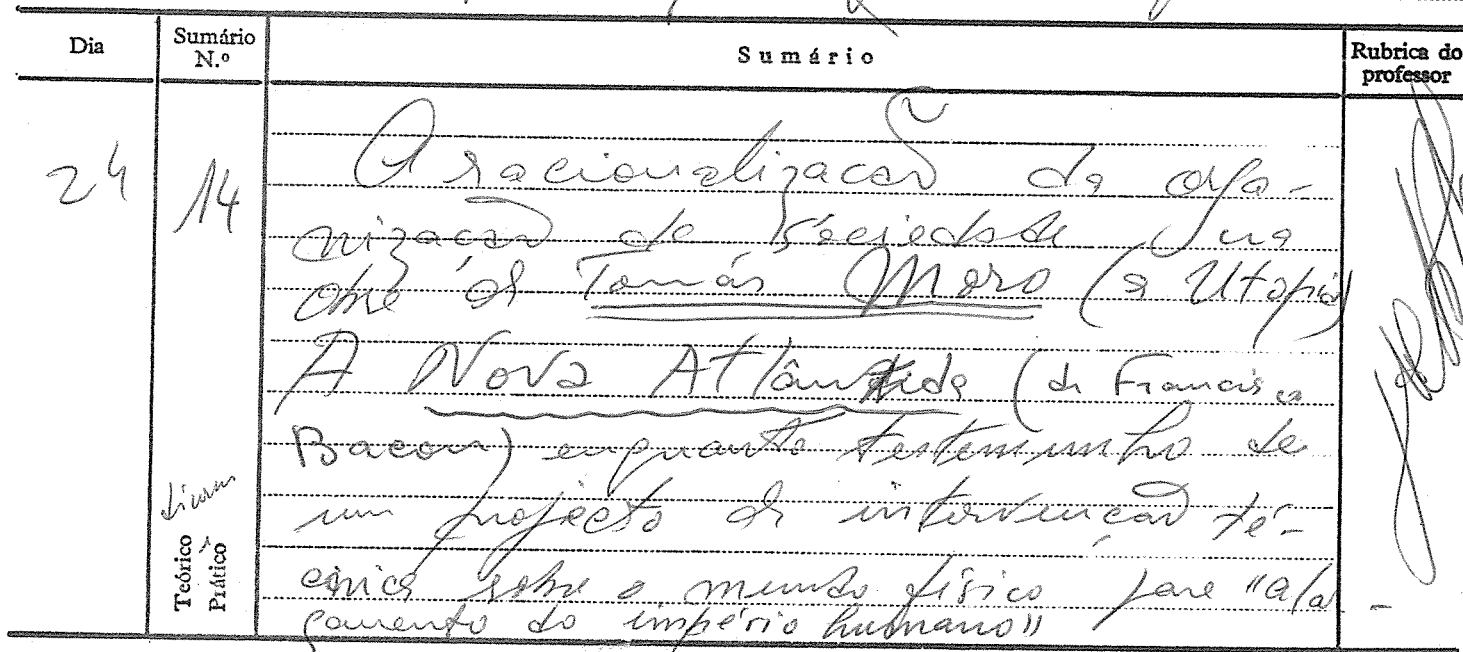 Dia
Sumário
N.º
Sumário
Rubrica do
professor
24
14
A racionalização da orga-
nização da Sociedade na
obra de Tomás Moro (a Utopia)
A Nova Atlântida (de Francis
Bacon) enquanto testemunho de
um projecto de intervenção té-
cnica sobre o mundo físico para "ala-
gamento do império humano"
Teórico
Prático